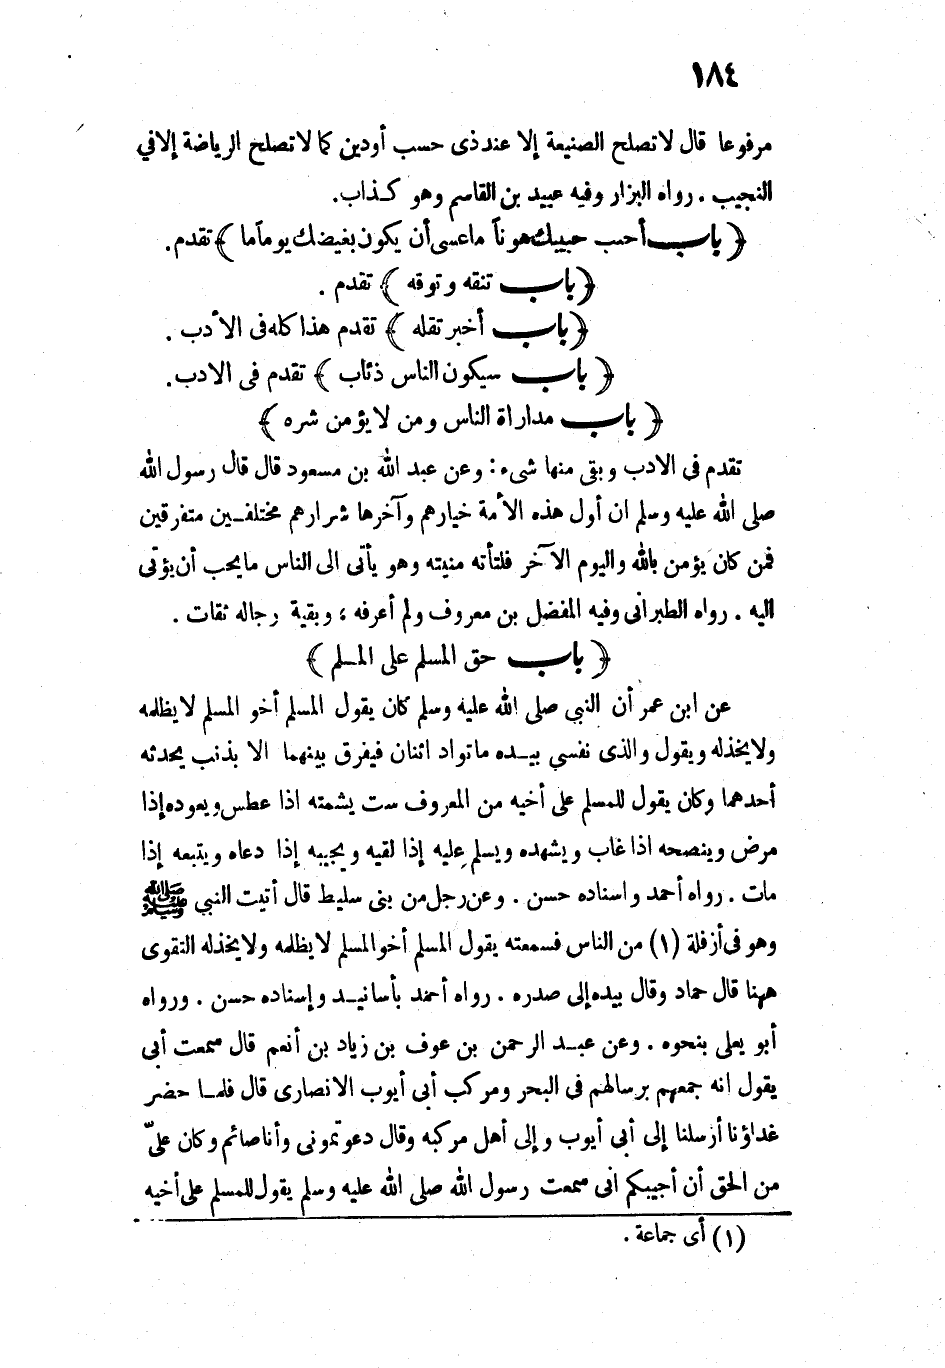 ١٨٤
مرفوعا قال لا تصلح الصنيعة إلا عند ذى حسب أودين كما لا تصلح الرياضة إلا في
النجيب . رواه البزار وفيه عبيد بن القاسم وهو كذاب.
﴿ باب أحبب حبيبك هوناً ما عسى أن يكون بغيضك يوماً ما ﴾ تقدم .
﴿ باب تنقه وتوقه ﴾ تقدم .
﴿ باب أخبر تقله ﴾ تقدم هذا كله فى الأدب .
﴿ باب سيكون الناس ذئاب ﴾ تقدم فى الادب.
﴿ باب مداراة الناس ومن لا يؤمن شره ﴾
تقدم فى الادب وبقى منها شىء : وعن عبد الله بن مسعود قال قال رسول الله
صلى الله عليه وسلم ان أول هذه الأمة خيارهم وآخرها شرارهم مختلفين متفرقين
فمن كان يؤمن بالله واليوم الآخر فلتأته منيته وهو يأتى الى الناس ما يحب أن يؤتى
اليه . رواه الطبرانى وفيه المفضل بن معروف ولم أعرفه ، وبقية رجاله ثقات .
﴿ باب حق المسلم على المسلم ﴾
عن ابن عمر أن النبي صلى الله عليه وسلم كان يقول المسلم أخو المسلم لا يظلمه
ولا يخذله ويقول والذى نفسي بيده ما تواد اثنان فيفرق بينهما الا بذنب يحدثه
أحدهما وكان يقول للمسلم على أخيه من المعروف ست يشمته اذا عطس ويعوده إذا
مرض وينصحه اذا غاب ويشهده ويسلم عليه إذا لقيه ويجيبه إذا دعاه ويتبعه إذا
مات . رواه أحمد واسناده حسن . وعن رجل من بنى سليط قال أتيت النبي ﷺ
وهو فى أزفلة (١) من الناس فسمعته يقول المسلم أخو المسلم لا يظلمه ولا يخذله التقوى
ههنا قال حماد وقال بيده إلى صدره . رواه أحمد بأسانيد وإسناده حسن . ورواه
أبو يعلى بنحوه . وعن عبد الرحمن بن عوف بن زياد بن أنعم قال سمعت أبى
يقول انه جمعهم برسالهم فى البحر ومركب أبى أيوب الانصارى قال فلما حضر
غداؤنا أرسلنا إلى أبى أيوب وإلى أهل مركبه وقال دعوتمونى وأنا صائم وكان علىّ
من الحق أن أجيبكم انى سمعت رسول الله صلى الله عليه وسلم يقول للمسلم على أخيه
(١) أى جماعة .